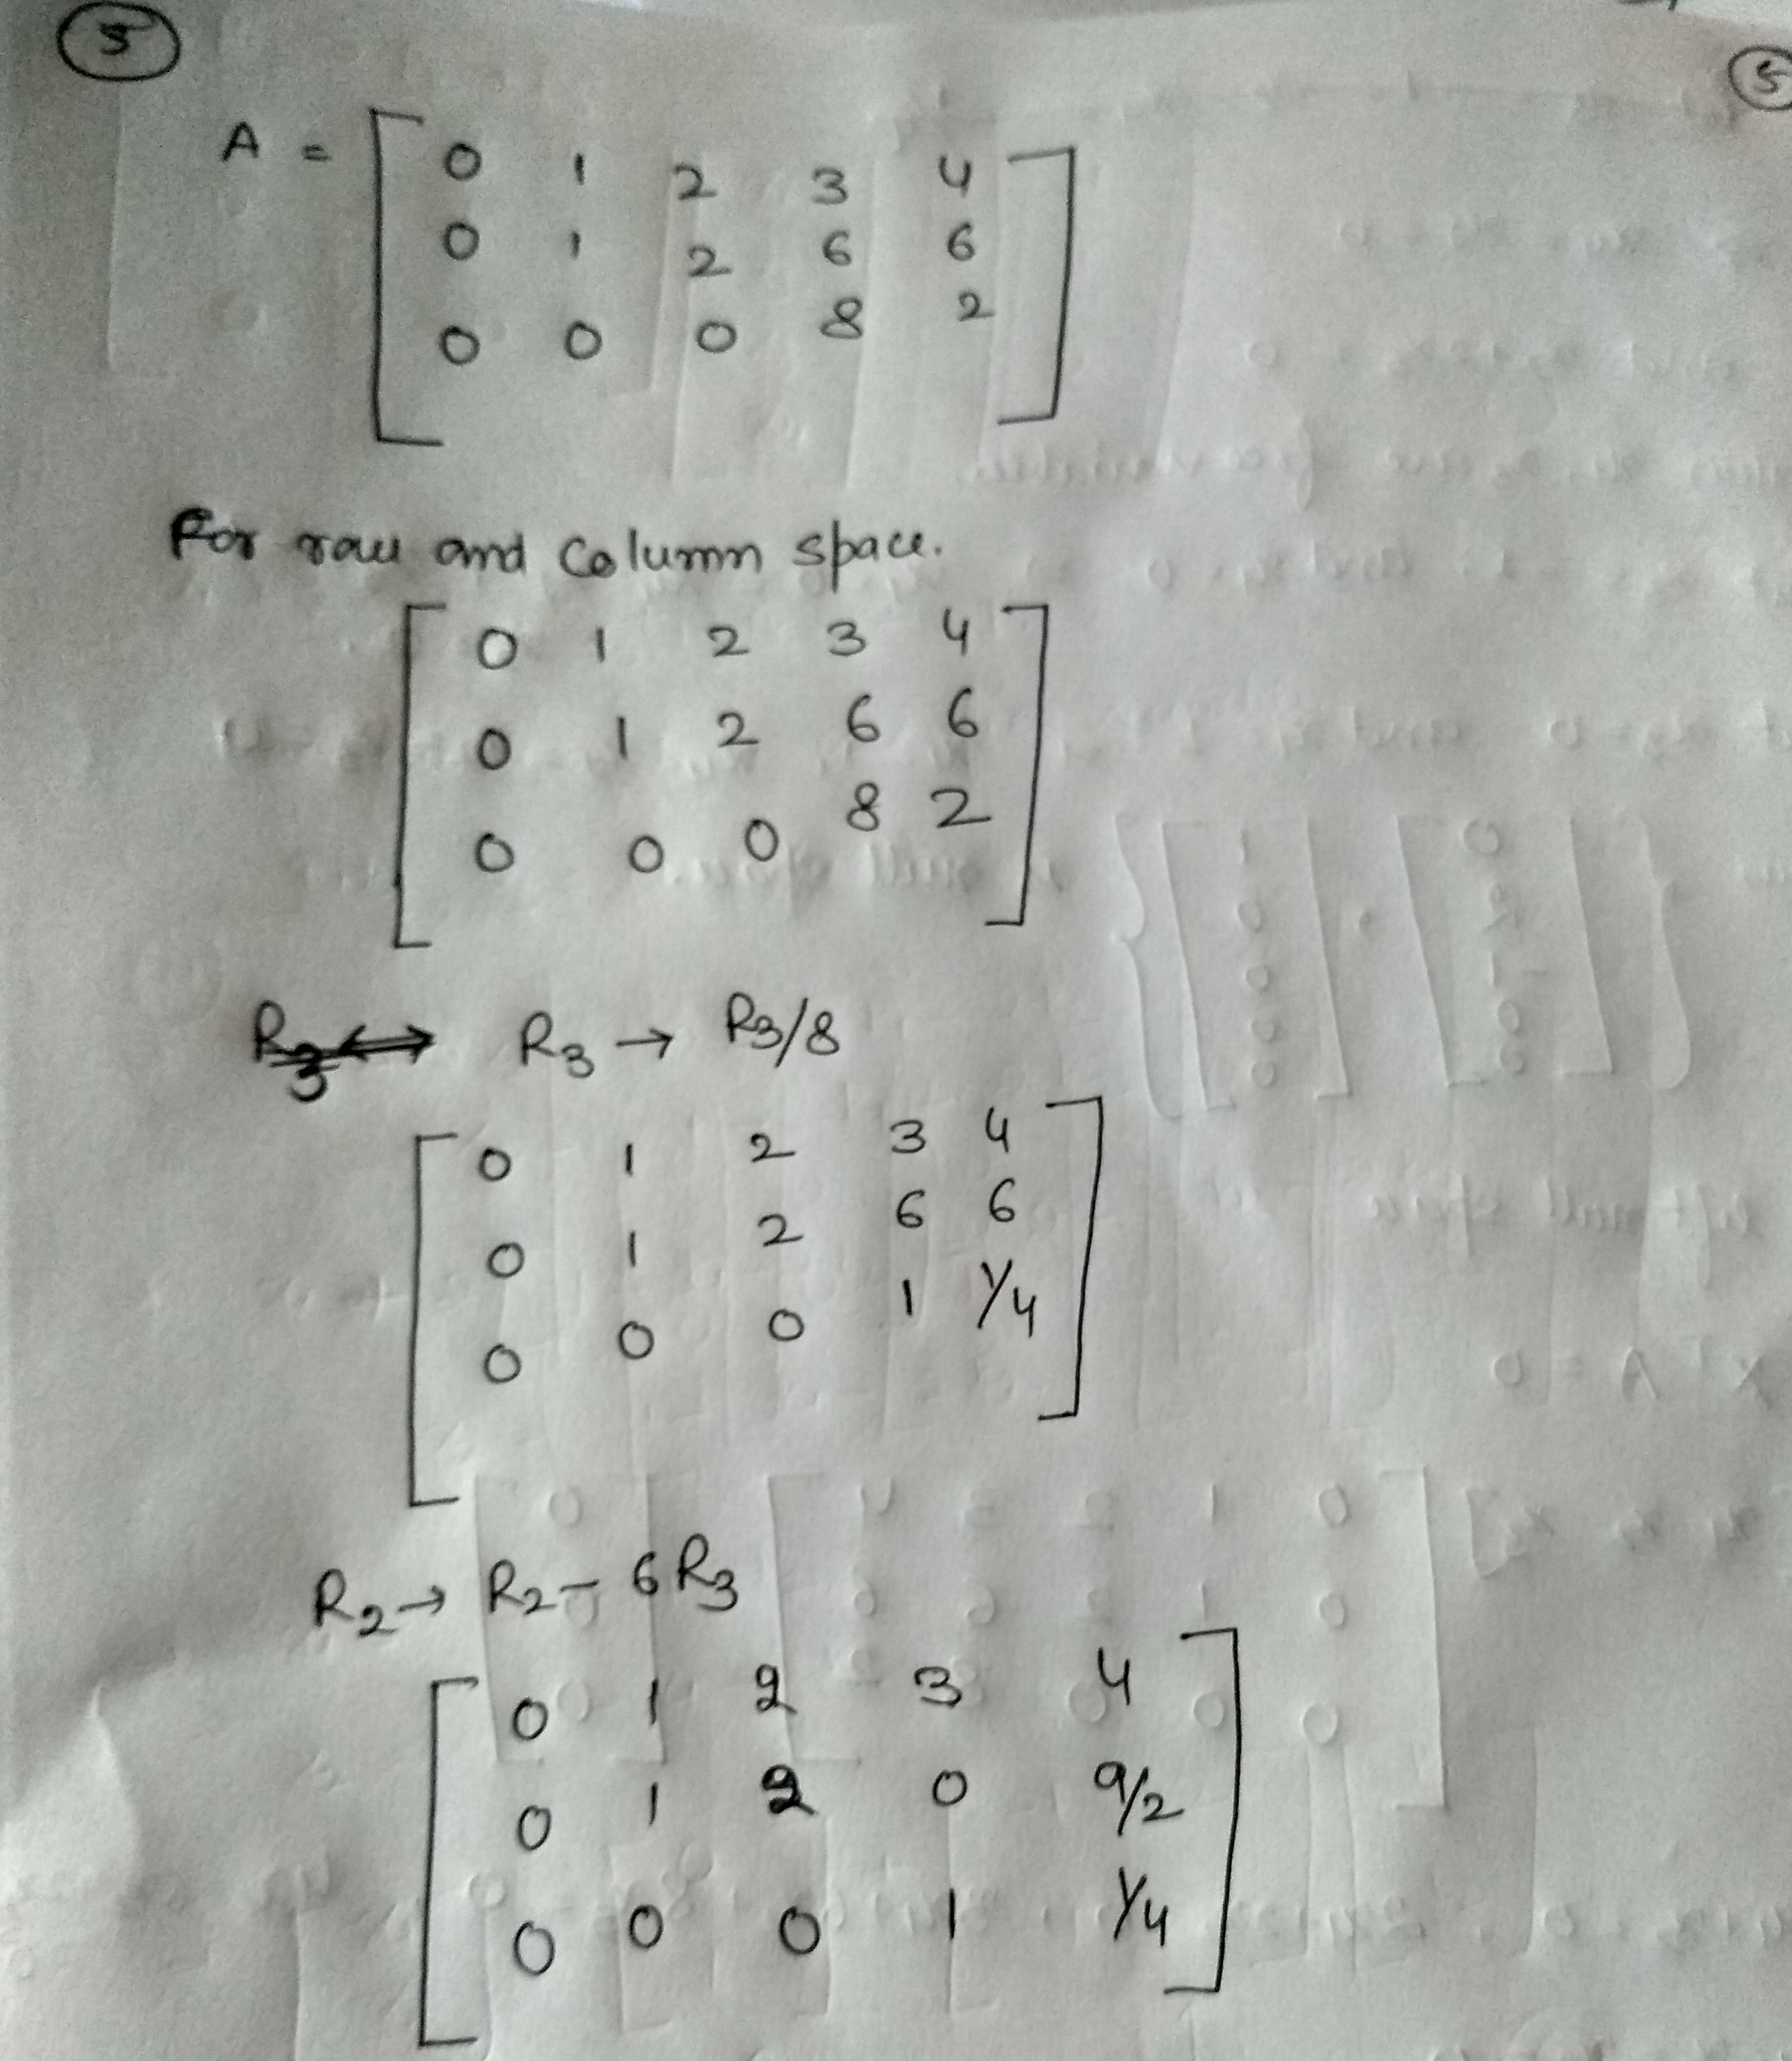 5
5
A = [ 0 1 2 3 4
0 1 2 6 6
0 0 0 8 2 ]
For row and Column space.
[ 0 1 2 3 4
0 1 2 6 6
0 0 0 8 2 ]
R3 ↔ R3 → R3/8
[ 0 1 2 3 4
0 1 2 6 6
0 0 0 1 1/4 ]
R2 → R2 - 6R3
[ 0 1 2 3 4
0 1 2 0 9/2
0 0 0 1 1/4 ]